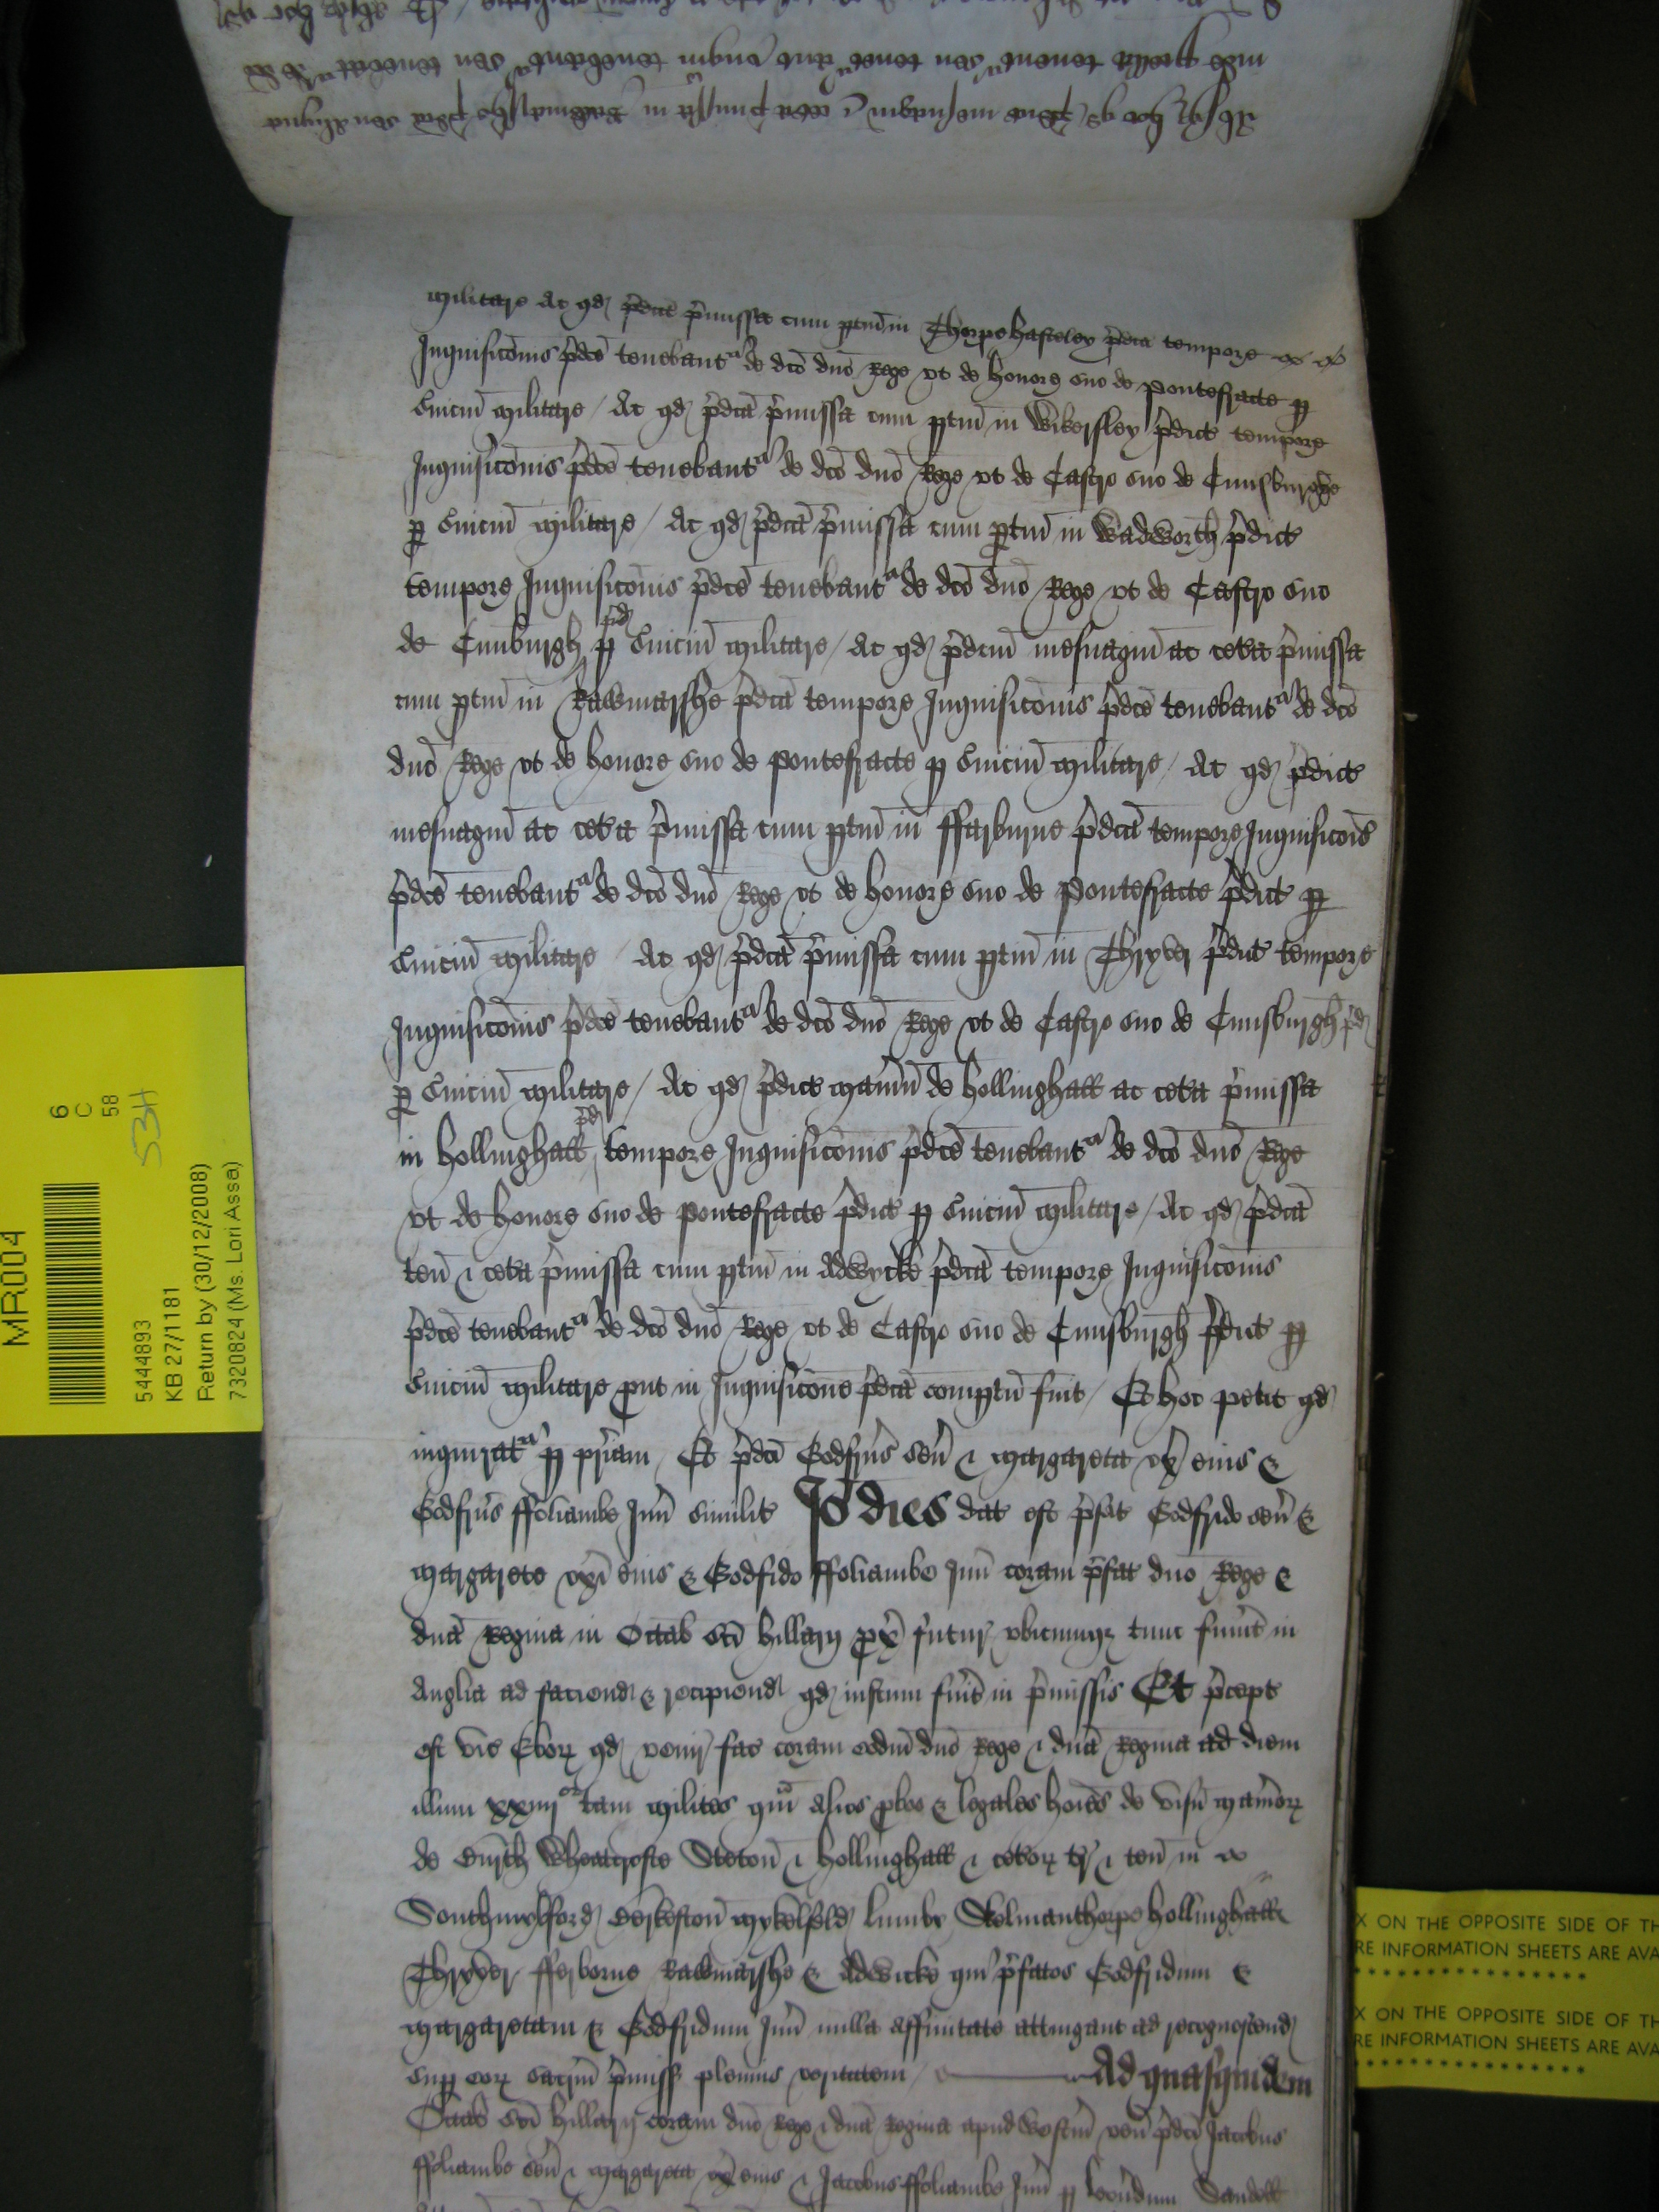 militare Ac qd p̄dcā p̄missa cum ptin̄ in Thorpe hasteley p̄dicā tempore
Inquisicōnis p̄dcē tenebantr de dcō dn̄o Rege vt de honore suo de Pontefracte p
S̄uiciū militare / Ac qd p̄dcā p̄missa cum ptin̄ in Wikersley p̄dict tempore
Inquisicōnis p̄dcē tenebantr de dcō dn̄o Rege vt de Castro suo de Cunisburghe
p S̄uiciū militare / Ac qd p̄dcā p̄missa cum ptin̄ in Wadworth p̄dict
tempore Inquisicōnis p̄dcē tenebantr de dcō dn̄o Rege vt de Castro suo
de Cunisburgh p̄d p S̄uiciū militare / Ac qd p̄dcm̄ mesuagiū ac cet̄a p̄missa
cum ptin̄ in Rawmarsshe p̄dcā tempore Inquisicōnis p̄dcē tenebantr de dcō
dn̄o Rege vt de honore suo de Pontefracte p S̄uiciū militare / Ac qd p̄dict
mesuagiū ac cet̄a p̄missa cum ptin̄ in ffarburne p̄dcā tempore Inquisicōis
p̄dcē tenebantr de dcō dn̄o Rege vt de honore suo de Pontefracte p̄dict p
S̄uiciū militare / Ac qd p̄dcā p̄missa cum ptin̄ in Thryb̄er p̄dict tempore
Inquisicōnis p̄dcē tenebantr de dcō dn̄o Rege vt de Castro suo de Cunisburgh p̄d
p S̄uiciū militare / Ac qd p̄dict man̄iū de hollinghall ac cet̄a p̄missa
in hollinghall p̄d tempore Inquisicōnis p̄dcē tenebantr de dcō dn̄o Rege
vt de honore suo de Pontefracte p̄dict p S̄uiciū militare / Ac qd p̄dcā
ten̄ & cet̄a p̄missa cum ptin̄ in Adwycke p̄dcā tempore Inquisicōnis
p̄dcē tenebantr de dcō dn̄o Rege vt de Castro suo de Cunisburgh p̄dict p
S̄uiciū militare put in Inquisicōne p̄dcā comptū fuit / Et hoc petit qd
inquiratr p pr̄iam / Et p̄dcī Godfrūs sen̄ & Margareta vx̄ eius &
Godfrūs ffoliambe Iun̄ similit Iō dies dat est p̄fat Godfrido sen̄ &
Margarete vxī eius & Godfrido ffoliambe Iun̄ coram p̄fat dn̄o Rege &
dn̄a Regina in Octab Scī hillarij px̄ futur vbicumqz tunc fuint in
Anglia ad faciend & recipiend qd iustum fūit in p̄missis Et p̄cept
est vic Ebor qd venir fac coram eodm̄ dn̄o Rege & dn̄a Regina ad diem
illum xxiiijor tam milites qm̄ alios pbos & legales hoīes de visū man̄ior
de Wheatcrofte Steton̄ & hollinghall & cet̄or t̄r & ten̄ in
Southmylfford mykelfeld lumby Skelmanthorpe hollinghall
Thryb̄er fferborne Rawmarshe & Adwicke qui p̄fatos Godfridum &
Margaretam & Godfridum Iun̄ nulla affinitate attingant ad recognoscend
sup eor sacrm̄ p̄miss plenius veritatem / Ad quasquidem
Octab Scī hillarij coram dn̄o Rege & dn̄a Regina apud westm̄ ven̄ p̄dcī Jacobus
ffoliambe sen̄ & Margareta vx̄ eius & Jacobus ffoliambe Iun̄ p Sandell
MR004
5444893
6
C
58
53H
KB 27/1181
Return by (30/12/2008)
7320824 (Ms. Lori Assa)
X ON THE OPPOSITE SIDE OF TH
RE INFORMATION SHEETS ARE AVA
X ON THE OPPOSITE SIDE OF TH
RE INFORMATION SHEETS ARE AVA